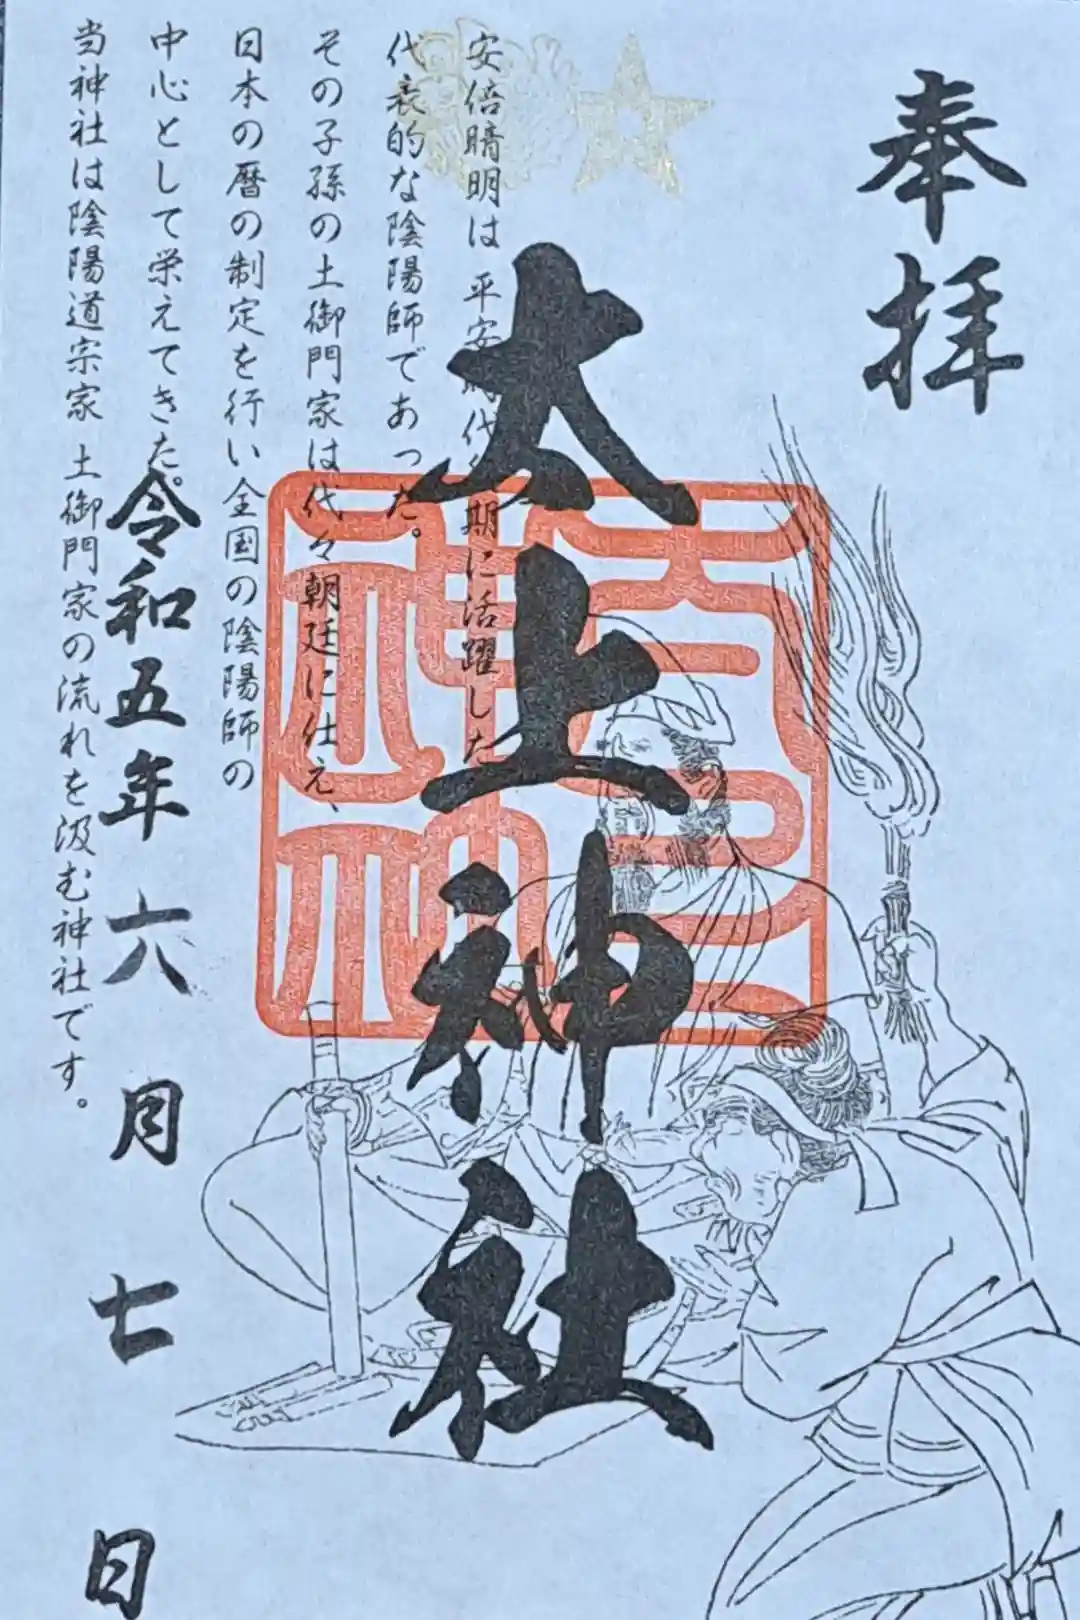 奉拝
太上神社
安倍晴明は 平安時代 期に活躍した
代表的な陰陽師であった。
その子孫の土御門家は代々朝廷に仕え、
日本の暦の制定を行い全国の陰陽師の
中心として栄えてきた。
当神社は陰陽道宗家 土御門家の流れを汲む神社です。
令和五年六月七日